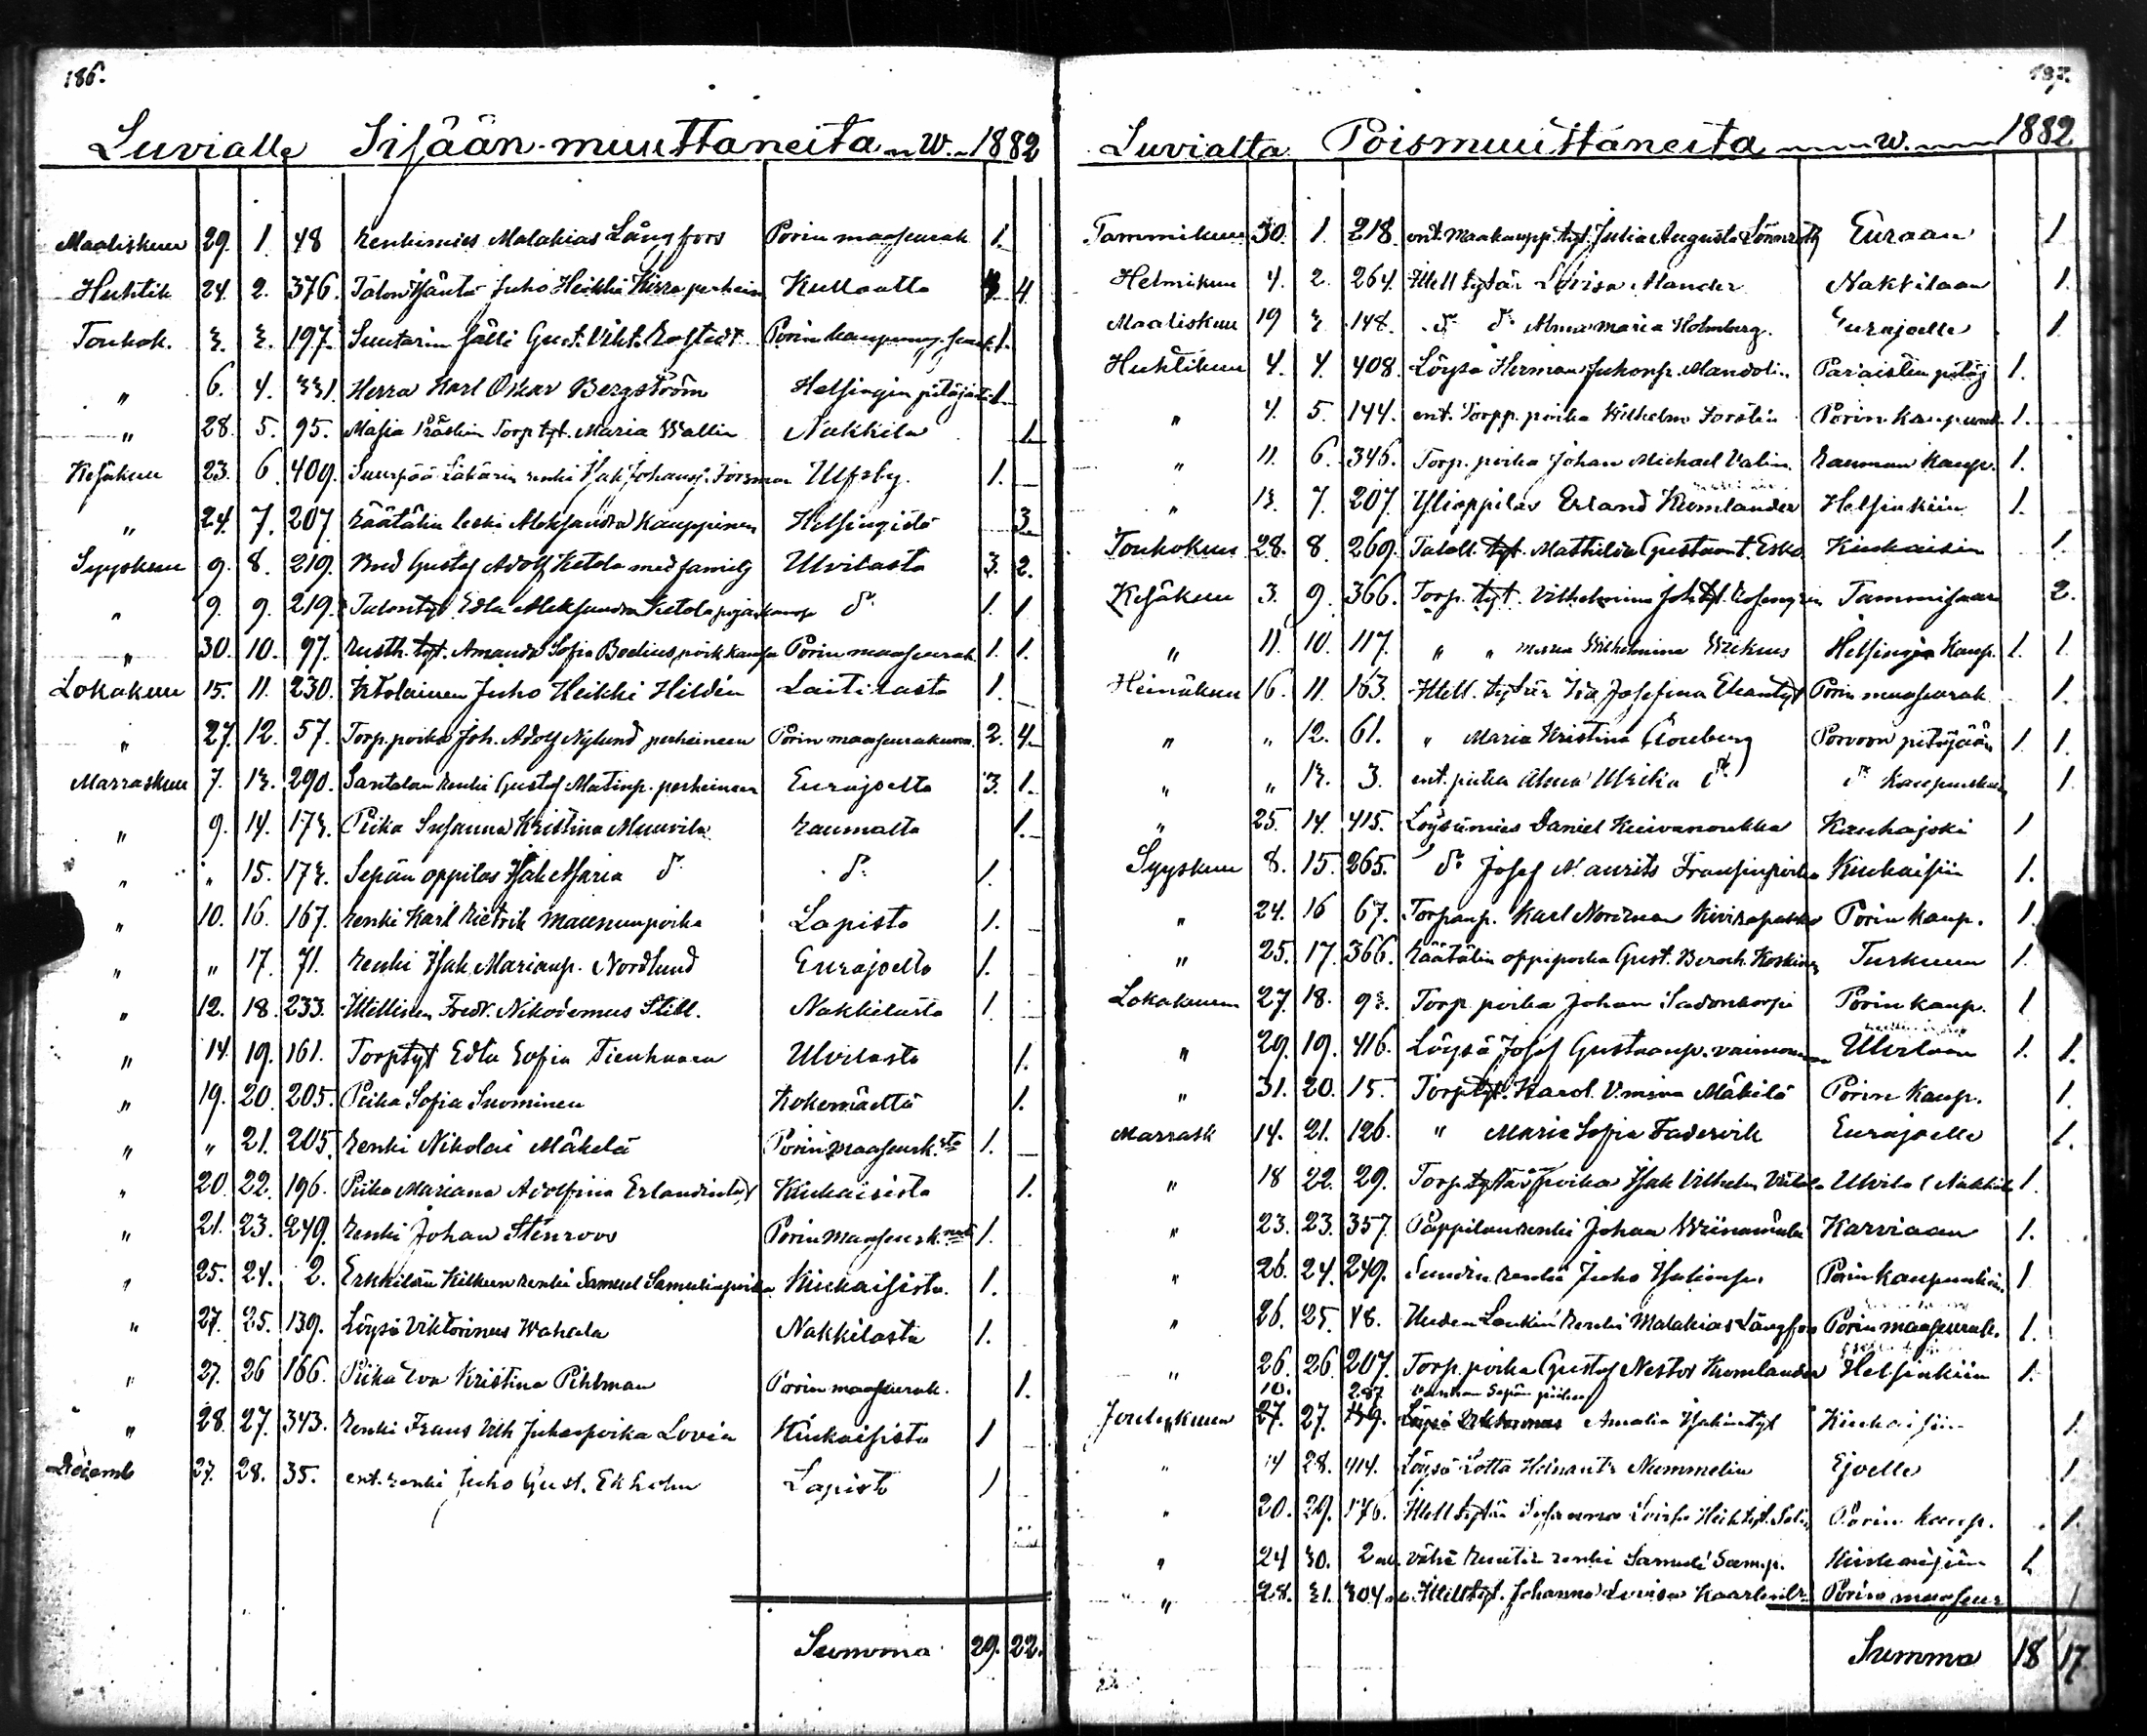 186.
Luvialle Sisään-muuttaneita w. 1882
Maaliskuu 29. 1. 48 Renkimies Malakias Långfors Porin maaseurak. 1.
Huhtik 24. 2. 376. Talon Isäntä Juho Heikki Kirra perhein Kullaalta 4.
Toukok. 3. 3. 197. Suutarin sälli Gust. Vikt. Porin kaupung. seurak. 1.
" 6. 4. 331. Herra Karl Oskar Bergström Helsingin pitäjästä 1.
" 28. 5. 95. Torp tyt. Maria Wallin Nakkila 1.
Kesäkuu 23. 6. 409. renki Isak Johansp. Forsman Ulfsby. 1.
" 24. 7. 207 Räätälin leski Aleksandra Kauppinen Helsingistä 3.
Syyskuu 9. 8. 219. Bud Gustaf Adolf Ketola med familj Ulvilasta 3. 2.
" 9. 9. 219. Talontyt. Edla Aleksandra Ketola pojan kansa d:o 1. 1.
" 30. 10. 97. Rusth. tyt. Amanda Sofia Boelius, poik kansa Porin maaseurak. 1. 1.
Lokakuu 15. 11. 230. Itsolainen Juho Heikki Hildén Laitilasta 1.
" 27. 12. 57. Torp. poika Joh. Adolf Nylund perheineen Porin maaseurakunn. 2. 4.
Marraskuu 7. 13. 290. Santalan renki Gustaf Matinp. perheineen Eurajoelta 3. 1.
" 9. 14. 173. Piika Susanna Kristina Muurila Raumalta 1.
" " 15. 173. Sepän oppilas Isak Maria d:o d:o 1.
" 10. 16. 167. renki Karl Rietrik Maununpoika Lapista 1.
" " 17. 71. Renki Isak Marianp. Nordlund Eurajoelta 1.
" 12. 18. 233. Itsellinen Fredr. Nikodemus Still. Nakkilasta 1.
" 14. 19. 161. Torptyt Edla Sofia Tienhaara Ulvilasta 1.
" 19. 20. 205. Piika Sofia Suominen Kokemäeltä 1.
" " 21. 205. Renki Nikolai Mäkelä Porin maaseurk.sta 1.
" 20. 22. 196. Piika Mariana Adolfina Erlandintyt Kiukaisista 1.
" 21. 23. 249. Renki Johan Stenroos Porin Maaseurk. 1.
" 25. 24. 2. Erkkilän Kilkun renki Samuel Samulinpoika Kiukaisista. 1.
" 27. 25. 139. Löysä Viktorinus Wahala Nakkilasta 1.
" 27. 26 166. Piika Eva Kristina Pihlman Porin maaseurak. 1.
" 28. 27. 343. Renki Frans Vilh Juhanpoika Lovia Kiukaisista 1
Decemb 27. 28. 35. ent. renki Juho Gust. Ekholm Lapista 1
Summa 29. 22.
187.
Luvialta Poismuuttaneita w. 1882
Tammikuu 30. 1. 218. ent. Maakaupp. tyt. Julia Augusta Lönnroth Euraan 1
Helmikuu 4. 2. 264. Itsell tytär Lovisa Mander Nakkilaan 1.
Maaliskuu 19 3 148. d:o d:o Alma maria Holmberg. Eurajoelle 1.
Huhtikuu 4. 4. 408. Löysä Herman Juhonp. Mandolin Paraisten pitäj 1.
" 4. 5. 144. ent. Torpp. poika Wilhelm Forstén Porin kaupunk. 1.
" 11. 6. 346. Torp. poika Johan Michael Valin Rauman Kaup. 1.
" 13. 7. 207. Ylioppilas Erland Kumlander Helsinkiin 1.
Toukokuu 28. 8. 269. Taloll. tyt. Mathilda Gustaant. Esko Kiukaisiin 1.
Kesäkuu 3. 9. 366. Torp. tyt. Vilhelmina Joh tyt. Rosengren Tammisaari 2.
" 11. 10. 117. " " maria Wilhelmina Wickus Helsingin Kaup. 1. 1.
Heinäkuu 16. 11. 163. Itsell. tytär Ida Josefina Eliantyt Porin maaseurak. 1.
" " 12. 61. " Maria Kristina Porvoon pitäjään 1. 1.
" " 13. 3. ent. piika Alma Ulrika d:o d:o Kaupunkiin 1
" 25. 14. 415. Löysämies Daniel Kuivanoukka Kauhajoki 1
Syyskuu 8. 15. 265. d:o Josef Maurits Fransinpoika Kiukaisiin 1.
" 24. 16 67. Torpanp. Karl Nordman Porin kaup. 1.
" 25. 17. 366. Räätälin oppipoika Gust. Koskinen Turkuun 1.
Lokakuun 27. 18. 93. Torp poika Johan Sadonkorpi Porin kaup. 1
" 29. 19. 416. Löysä Josef Gustaanp. vaimonsa Ulvilaan 1. 1.
" 31. 20. 15. Torp tyt. Karol. V.mina Mäkilä Porin Kaup. 1.
Marrask 14. 21. 126. " Maria Sofia Fadervik Eurajoelle 1.
" 18 22. 29. Torp tytär poika Isak Vilhelm Ulvila (Nakkila 1.
" 23. 23. 357. Pappilan renki Johan Wiinamäki Karviaan 1.
" 26. 24. 249. Sundin renki Juho Porin kaupunkiin. 1
" 26. 25. 48. Uuden Laukin renki Malakias Långfors Porin maaseurak. 1.
" 26. 26. 207. Torp. poika Gustaf Nestor Kumlander Helsinkiin 1.
10. 287 Vanhan Sepän piika
Joulukuun 27. 27. 139. Löysä Viktorinus Amalia Isakintyt Kiukaisiin 1.
" 14 28. 414. Löysä Lotta Nummelin Ejoelle 1
" 20. 29. 176. Itsell tytär Susanna Lovisa Heik tyt. Porin kaup. 1.
" 24 30. 2 renki Samuli Samp. Kiukaisiin 1
" 28. 31. 304 Itsell tyt. Johanna Lovisa Porin maaseur 1
Summa 18 17